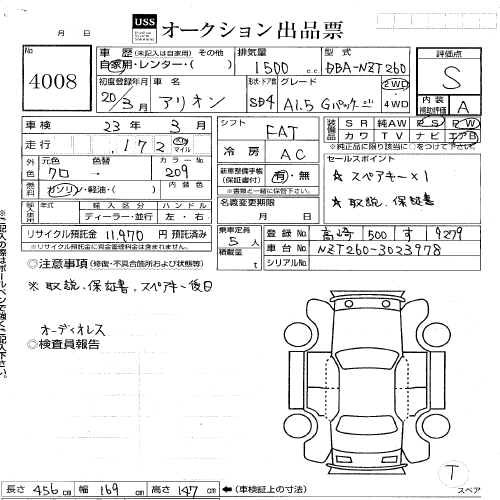 月 日 USS オークション出品票
No 4008
車歴 (未記入は自家用) その他 排気量 型式 評価点
自家用・レンター・( ) 1500 cc DBA-NZT260 S
初度登録年月 車名 形状・ドア数 グレード 2WD 内装補助評価
20/3月 アリオン SD4 A1.5 Gパッケージ 4WD A
車検 23年 3月 シフト FAT 装備品 SR 純AW PS PW
走行 ,172 km マイル カワ TV ナビ エアB
※純正品に限り該当に○をつけて下さい。
外色 元色 色替 カラーNo 冷房 AC セールスポイント
クロ → 209
燃料 ガソリン・軽油・( ) 内装色 新車整備手帳(保証書付) 有・無 ☆スペアキー×1
※書類と一緒に保管下さい。
輸入車 年 輸入区分 ハンドル 名義変更期限 ☆取説、保証書
ディーラー・並行 左・右 月 日
リサイクル預託金 11,970円 預託済み 乗車定員 5人 登録No 高崎 500 す 9279
※リサイクル預託金に資金管理料金は含まれません。 積載量 t 車台No NZT260-3023978
シリアルNo
◎注意事項 (修復・不具合箇所および状態等)
※取説、保証書、スペアキー後日
オーディオレス
◎検査員報告
※ご記入の際はボールペンで強くご記入下さい。
長さ 456cm 幅 169cm 高さ 147cm ←(車検証上の寸法)
T
スペア